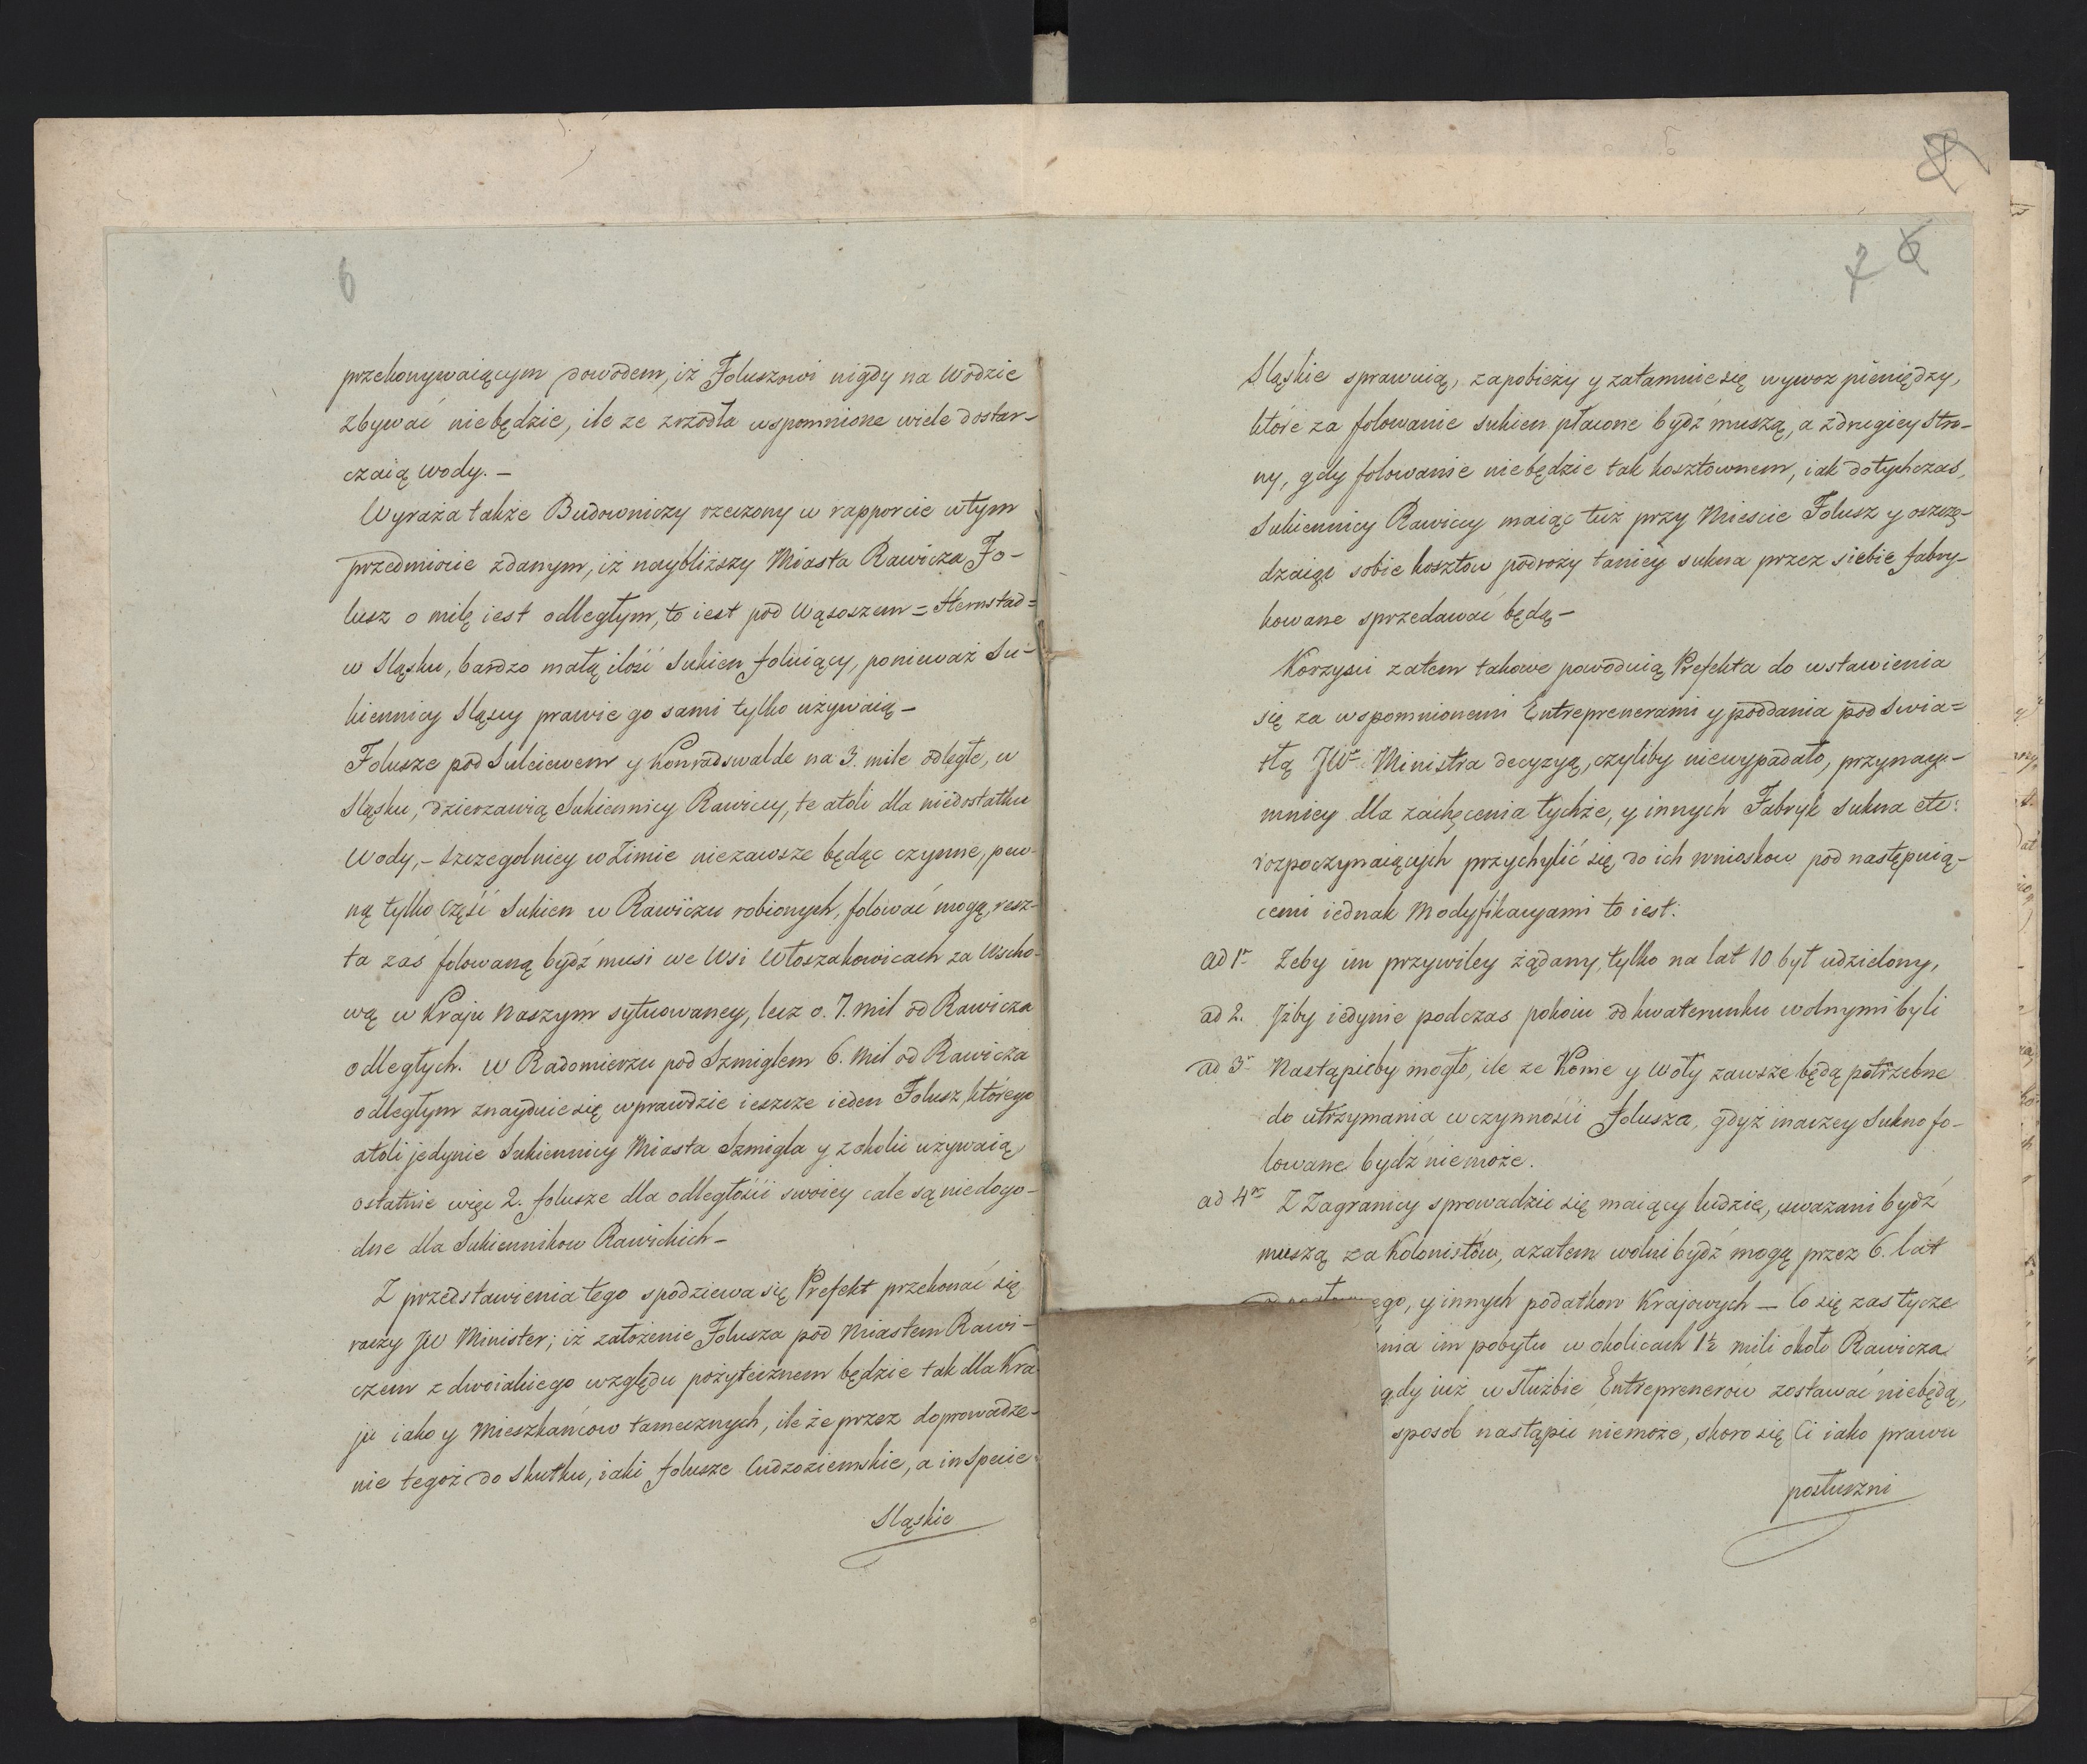 6
przekonywaiącym dowodem, iż Foluszowi nigdy na wodzie
zbywać niebędzie, ile ze zrzodła wspomnione wiele dostar-
czaią wody. -
Wyraża także Budowniczy rzeczony w rapporcie wtym
przedmiocie zdanym, iż naybliższy Miasta Rawicza Fo-
lusz o milę iest odległym, to iest pod Wąsoszem = Hernstad =
w Sląsku, bardzo małą ilość Sukien foluiący, ponieważ Su-
kiennicy Sląscy prawie go sami tylko używaią -
Folusze pod Sulciewem y Konradswalde na 3. mile odległe, w
Sląsku, dzierzawią Sukiennicy Rawiccy, te atoli dla niedostatku
Wody, - szczegolniey w Zimie niezawsze będąc czynne, pew-
ną tylko część Sukien w Rawiczu robionych, folować mogą, resz-
ta zaś folowaną bydź musi we Wsi Włoszakowicach za Wscho-
wą w Kraju Naszym sytuowaney, lecz o. 7. mil od Rawicza
odległych. w Radomierzu pod Szmiglem 6. Mil od Rawicza
odległym znayduie się wprawdzie ieszcze ieden Folusz, którego
atoli jedynie Sukiennicy Miasta Szmigla y z okolic używaią,
ostatnie więc 2. folusze dla odległości swoiey całe są niedogo-
dne dla Sukiennikow Rawickich -
Z przedstawienia tego spodziewa się Prefekt przekonać się
raczy JW Minister; iż założenie Folusza pod Miastem Rawi-
czem z dwoiakiego względu pożytecznem będzie tak dla Kra-
ju iako y Mieszkańcow tamecznych, ile że przez doprowadze-
nie tegoż do skutku, iaki folusze Cudzoziemskie, a in Specie
Sląskie
7 6
Sląskie sprawuią, zapobieży y zatamnie się wywoz pieniędzy,
które za folowanie sukien płacone bydź muszą, a zdrugiey Stro-
ny, gdy folowanie niebędzie tak kosztownem, iak dotychczas,
Sukiennicy Rawiccy maiąc tuż przy Miescie Folusz y oszczę-
dzaiąc sobie kosztow podroży taniey sukna przez siebie fabry-
kowane sprzedawać będą -
Korzysci zatem takowe powoduią Prefekta do wstawienia
się za wspomnionemi Entreprenerami y poddania pod Swia =
tłą JWo Ministra decyzyą, czyliby niewypadało, przynay-
mniey dla zachęcenia tychże, y innych Fabryk sukna etc:
rozpoczynaiących przychylić się do ich wnioskow pod następuią-
cemi iednak Modyfikacyami to iest:
ad 1o Zeby im przywiley żądany, tylko na lat 10 był udzielony,
ad 2. Jżby iedynie podczas pokoiu od kwaterunku wolnymi byli
ad 3o Nastąpićby mogło, ile ze Konie y Woły zawsze będą potrzebne
do utrzymania w czynności folusza, gdyż inaczey Sukno fo-
lowane bydź niemoże.
ad 4o Z Zagranicy sprowadzić się maiący ludzie, uważani bydź
muszą za Kolonistów, azatem wolni bydź mogą przez 6. lat
ego, y innych podatkow Krajowych - Co się zas tycze
nia im pobytu w okolicach 1½ mili około Rawicza
gdy iuż w służbie Entreprenerow zostawać niebędą,
sposob nastąpić niemoże, skoro się Ci iako prawu
posłuszni